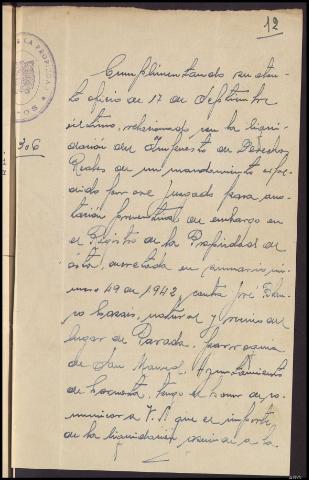 12
DE LA PROPIEDAD
306
Cumplimentando su aten-
to oficio de 17 de Septiembre
último, relacionado con la liqui-
dación del Impuesto de Derechos
Reales de un mandamiento expe-
dido por ese Juzgado para ano-
tación preventiva de embargo en
el Registro de la Propiedad de
ésta, decretada en sumario nú-
mero 49 de 1942, contra José
Casas, natural y vecino del
lugar de Parada, parroquia
de San Manuel, Ayuntamiento
de tengo el honor de co-
municar a V. S. que el importe
de la liquidación a la